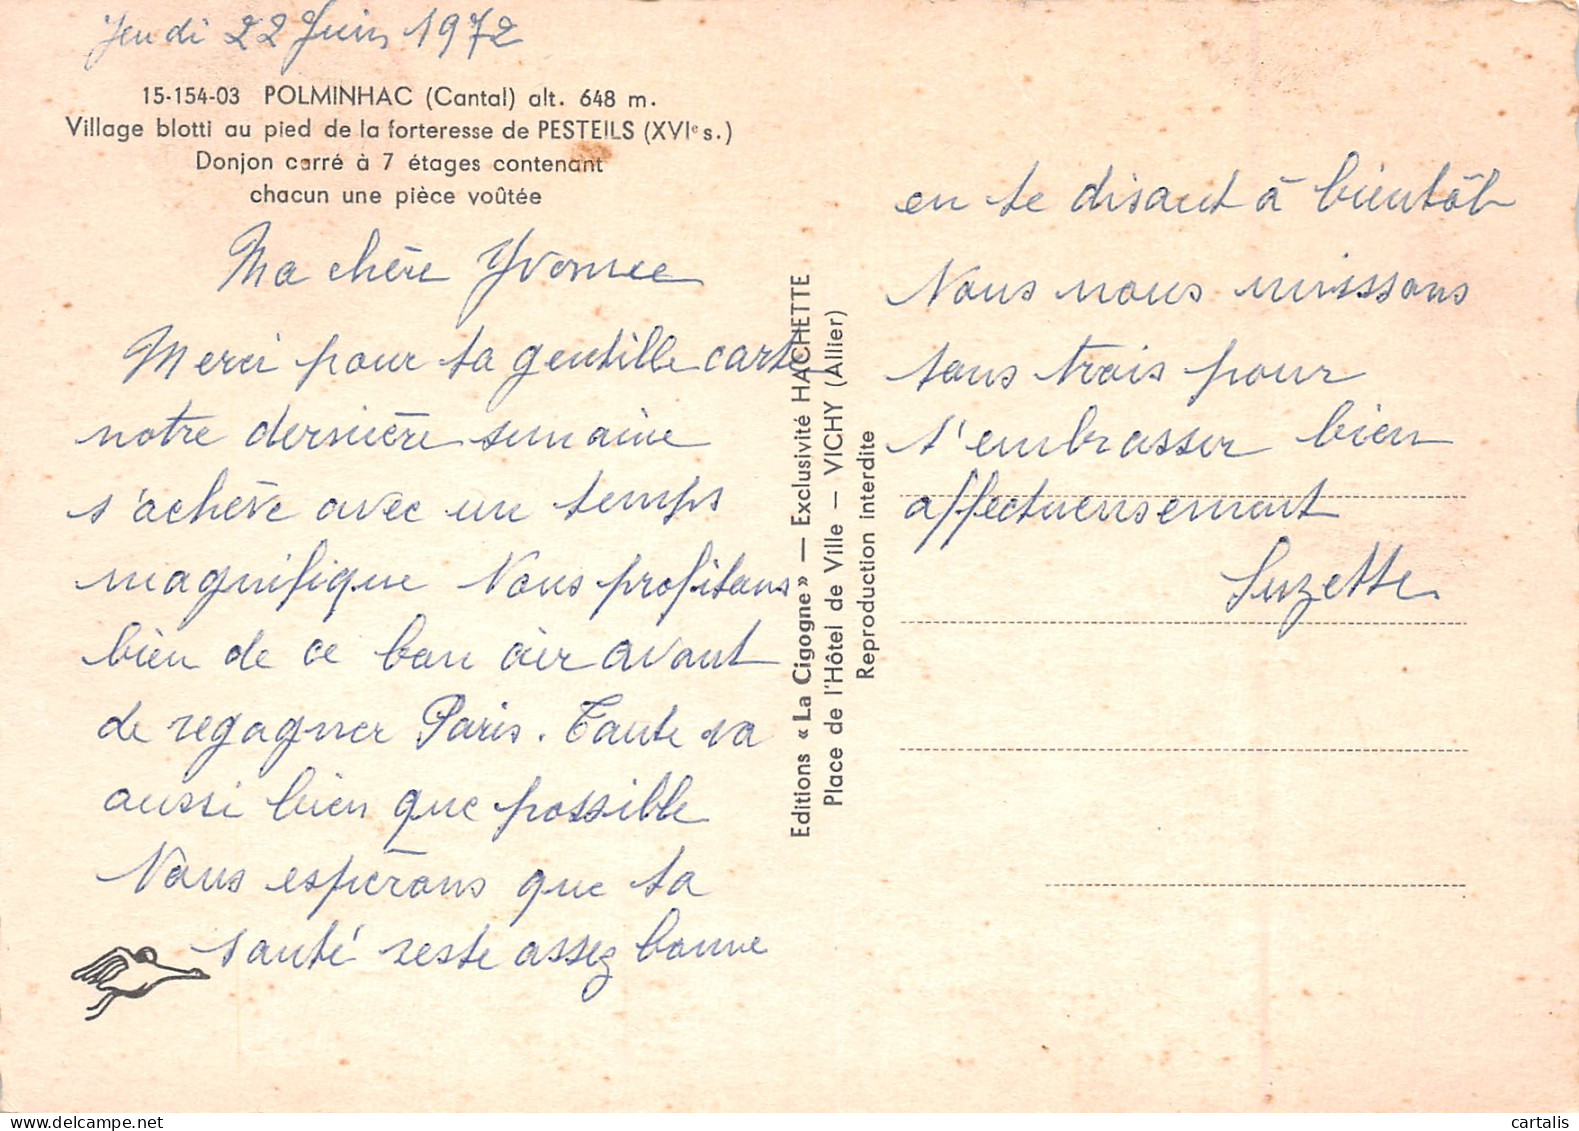 Jeudi 22 Juin 1972
15-154-03 POLMINHAC (Cantal) alt. 648 m.
Village blotti au pied de la forteresse de PESTEILS (XVIe s.)
Donjon carré à 7 étages contenant
chacun une pièce voûtée
Ma chère Yvonne
Merci pour ta gentille carte
notre dernière semaine
s'achève avec un temps
magnifique Nous profitons
bien de ce bon air avant
de regagner Paris. Tante va
aussi bien que possible
Nous espérons que ta
santé reste assez bonne
Editions « La Cigogne » — Exclusivité HACHETTE
Place de l'Hôtel de Ville — VICHY (Allier)
Reproduction interdite
en te disant à bientôt
Nous nous unissons
tous trois pour
t'embrasser bien
affectueusement
Suzette
delcampe.net
cartalis